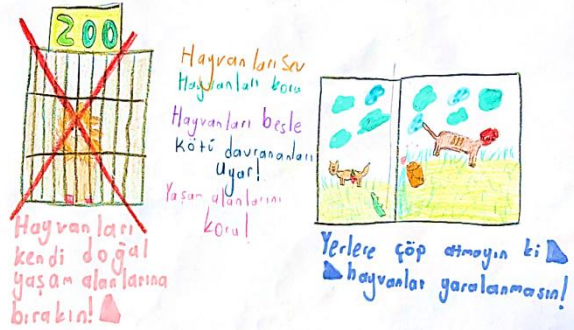 ZOO
Hayvanları
kendi doğal
yaşam alanlarına
bırakın!
Hayvanları sev
Hayvanları koru
Hayvanları besle
Kötü davrananları
Uyar!
Yaşam alanlarını
koru!
Yerlere çöp atmayın ki
hayvanlar yaralanmasın!